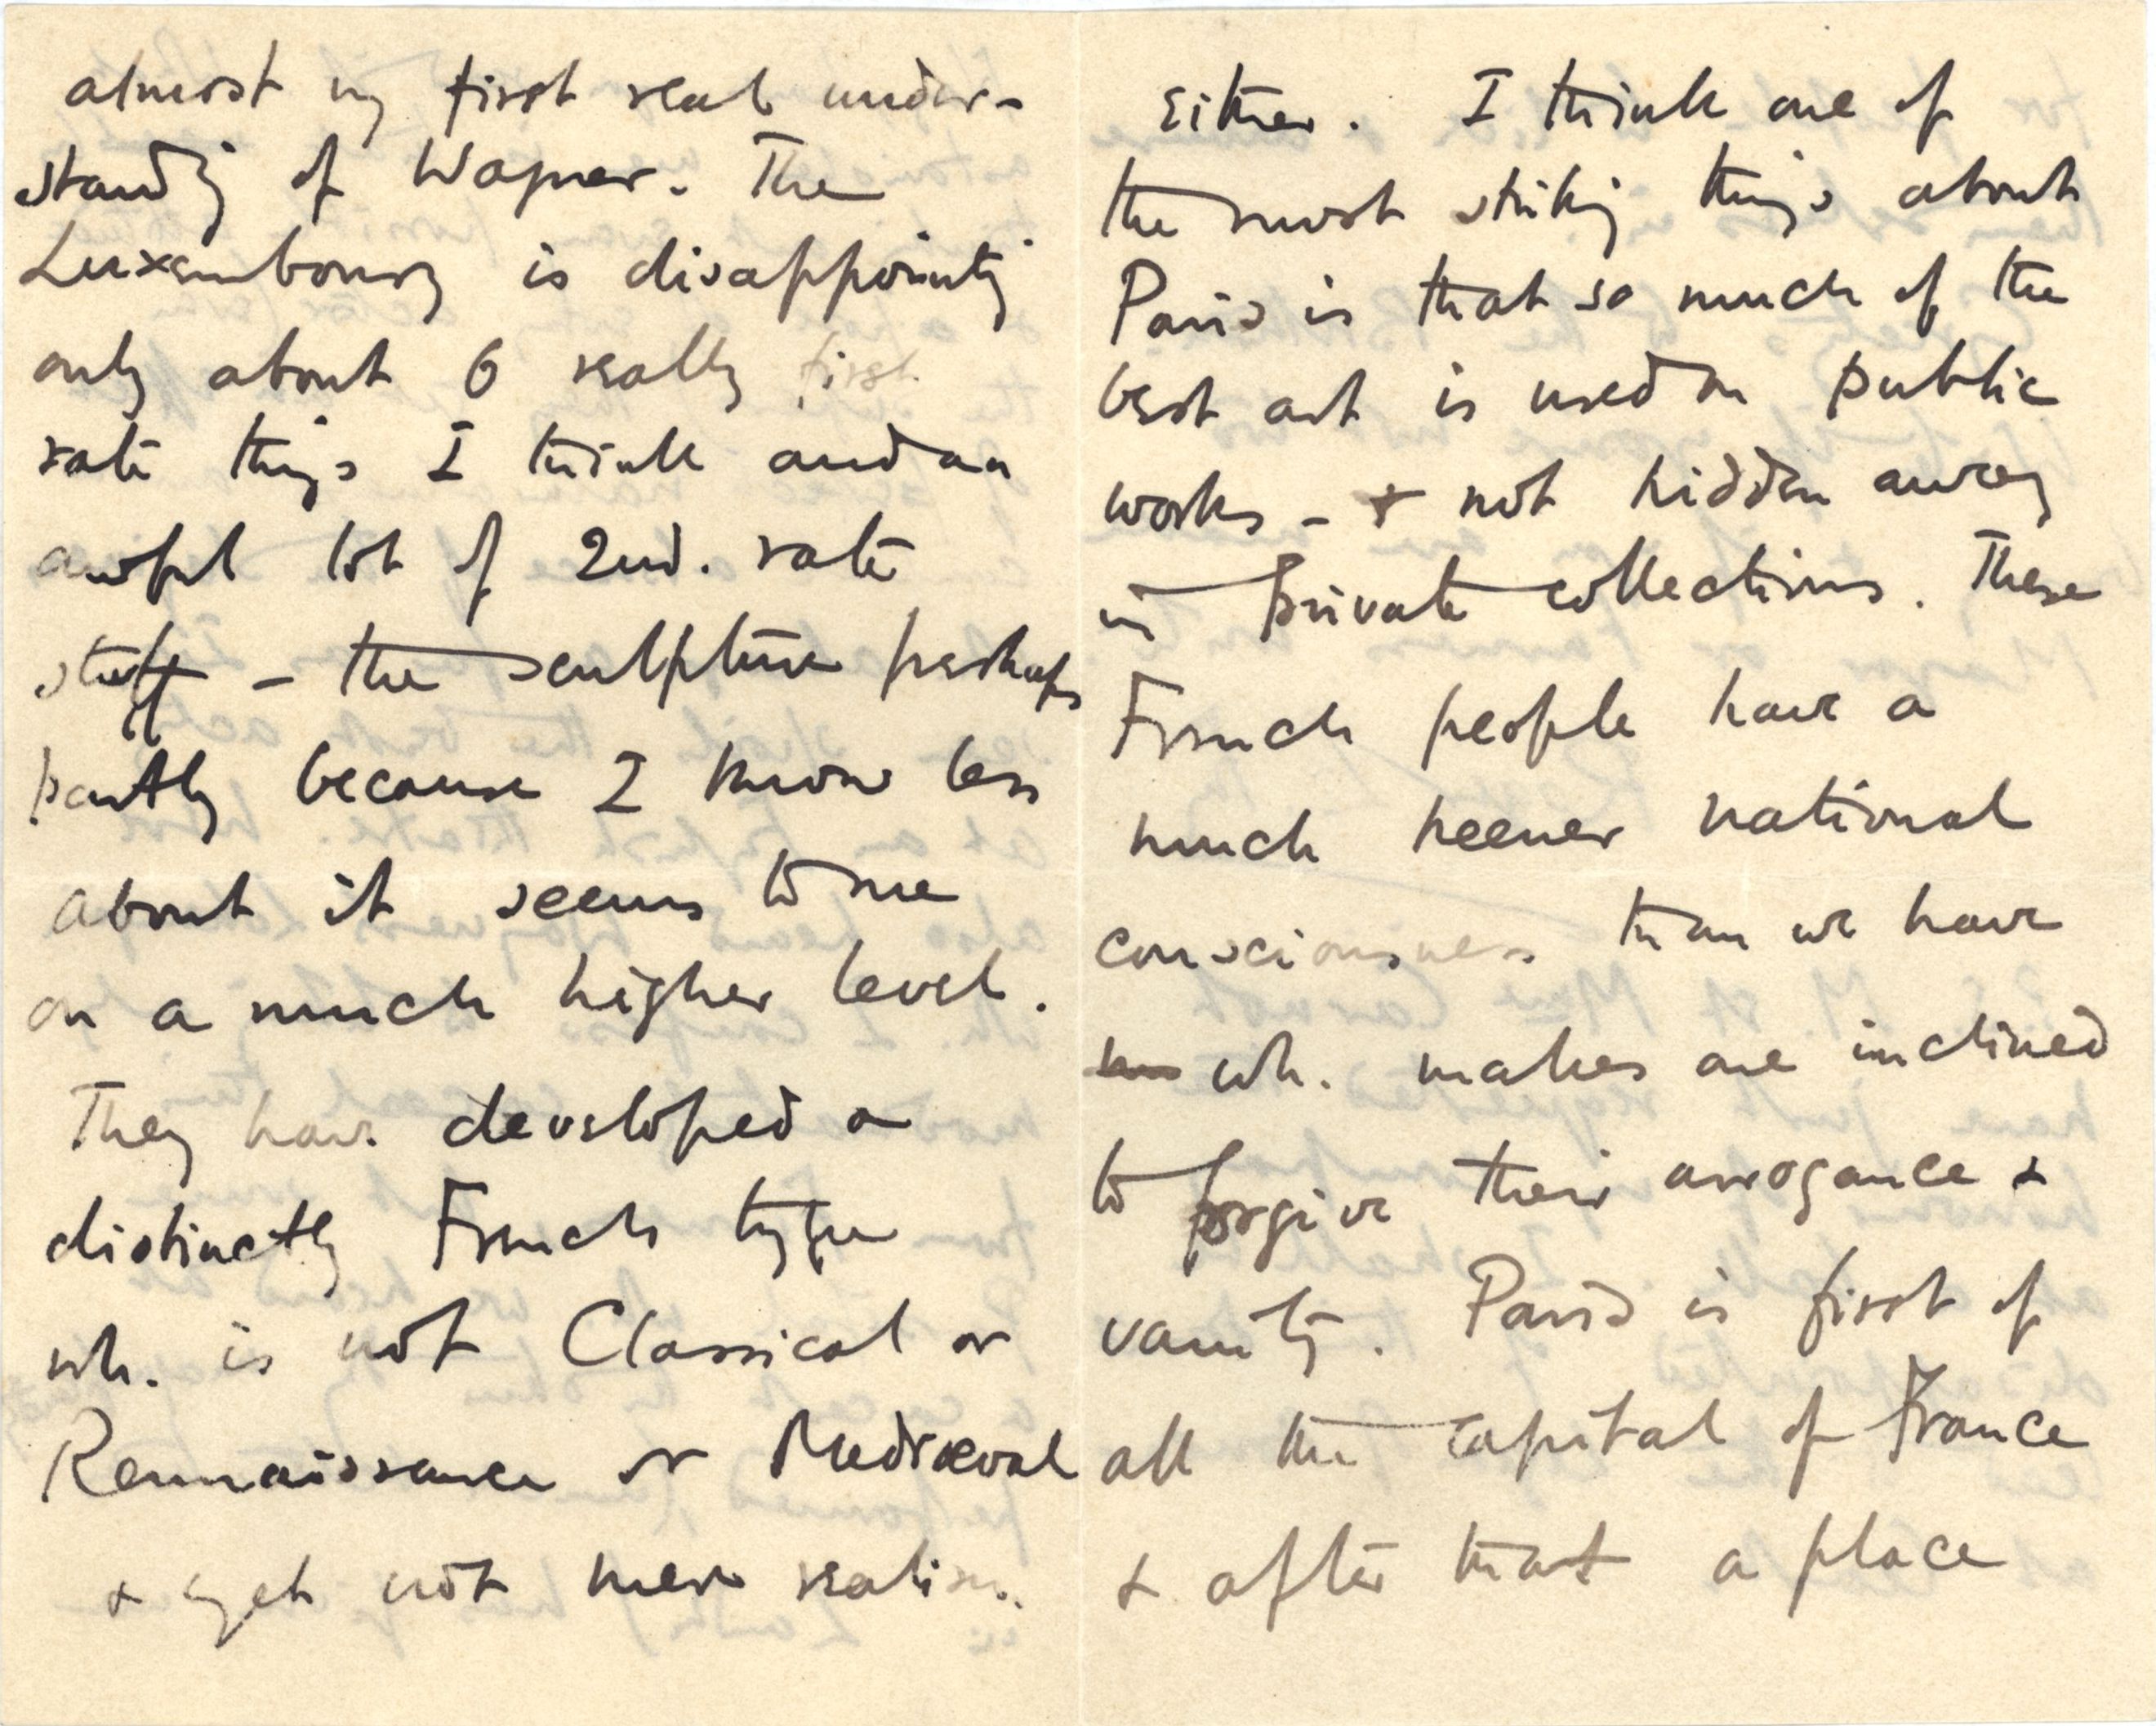 almost my first real under-
standing of Wagner. The
Luxembourg is disappointing
only about 6 really first
rate things I think and an
awful lot of 2nd. rate
stuff – the sculpture perhaps
partly because I know less
about it seems to me
on a much higher level.
They have developed a
distinctly French type
wh. is not Classical or
Rennaissance or Mediæval
& yet not mere realism.
either. I think one of
the most striking things about
Paris is that so much of the
best art is used on public
works – & not hidden away
in private collections. These
French people have a
much keener national
consciousness than we have
wh. makes one inclined
to forgive their arrogance &
vanity. Paris is first of
all the capital of France
& after that a place